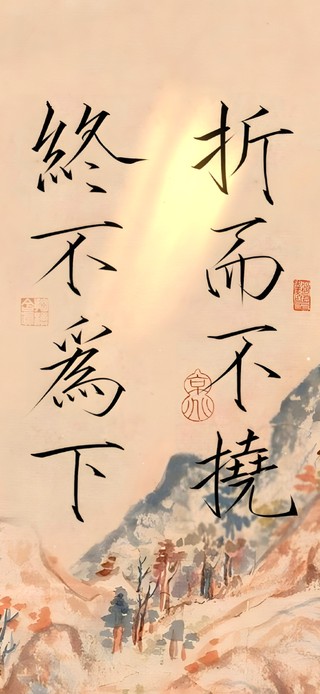 折而不撓
終不為下